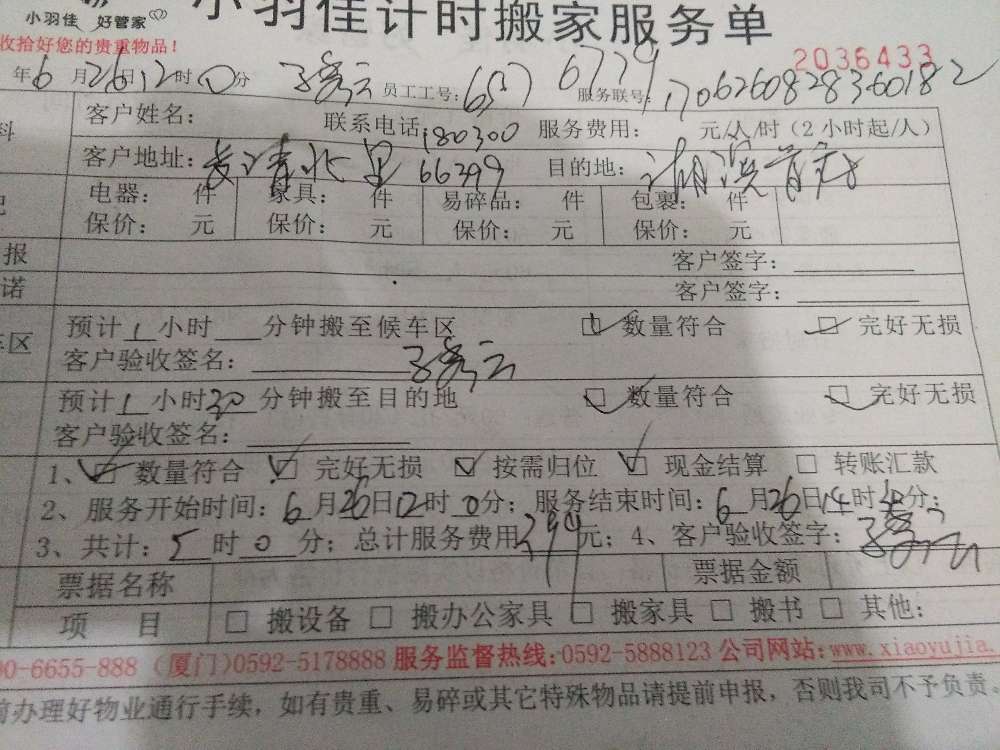 小羽佳 好管家
小羽佳计时搬家服务单
收拾好您的贵重物品！
2036433
年6月26日12时0分 员工工号： 6779 服务联号：1706260828360182
客户姓名： 联系电话 180300 服务费用： 元/人/时（2小时起/人）
客户地址： 北里 66399 目的地：
电器： 件 家具： 件 易碎品： 件 包裹： 件
保价： 元 保价： 元 保价： 元 保价： 元
报 客户签字：
诺 客户签字：
车区 预计1小时 分钟搬至候车区 □ 数量符合 □ 完好无损
客户验收签名：
预计1小时30分钟搬至目的地 □ 数量符合 □ 完好无损
客户验收签名：
1、□ 数量符合 □ 完好无损 □ 按需归位 □ 现金结算 □ 转账汇款
2、服务开始时间：6月26日12时0分；服务结束时间：6月26日14时分；
3、共计：5时0分；总计服务费用399元；4、客户验收签字：
票据名称 票据金额
项 目 □ 搬设备 □ 搬办公家具 □ 搬家具 □ 搬书 □ 其他：
00-6655-888（厦门)0592-5178888 服务监督热线：0592-5888123 公司网站：www.xiaoyujia.
前办理好物业通行手续，如有贵重、易碎或其它特殊物品请提前申报，否则我司不予负责。